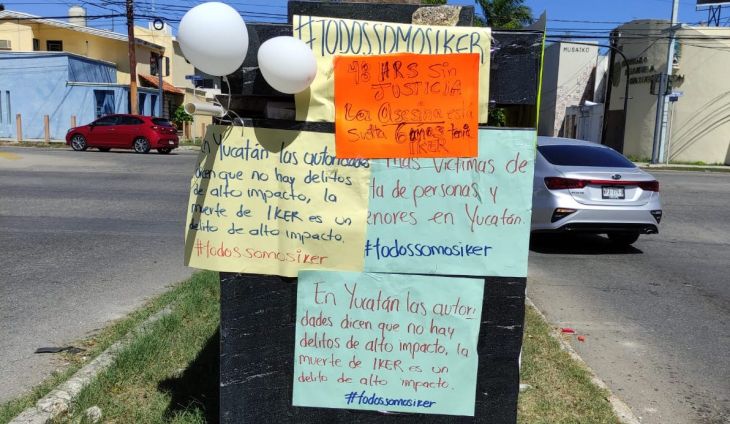 #TODOSSOMOSIKER
HRS Sin
JUSTICIA
La Asesina está
suelta 6 años tenía
IKER
En Yucatán las autoridades
dicen que no hay delitos
de alto impacto, la
muerte de IKER es un
delito de alto impacto.
#todossomosiker
mas víctimas de
ta de personas y
enores en Yucatán.
#todossomosiker
En Yucatán las autori
dades dicen que no hay
delitos de alto impacto, la
muerte de IKER es un
delito de alto impacto.
#todossomosiker
MUBAIKO